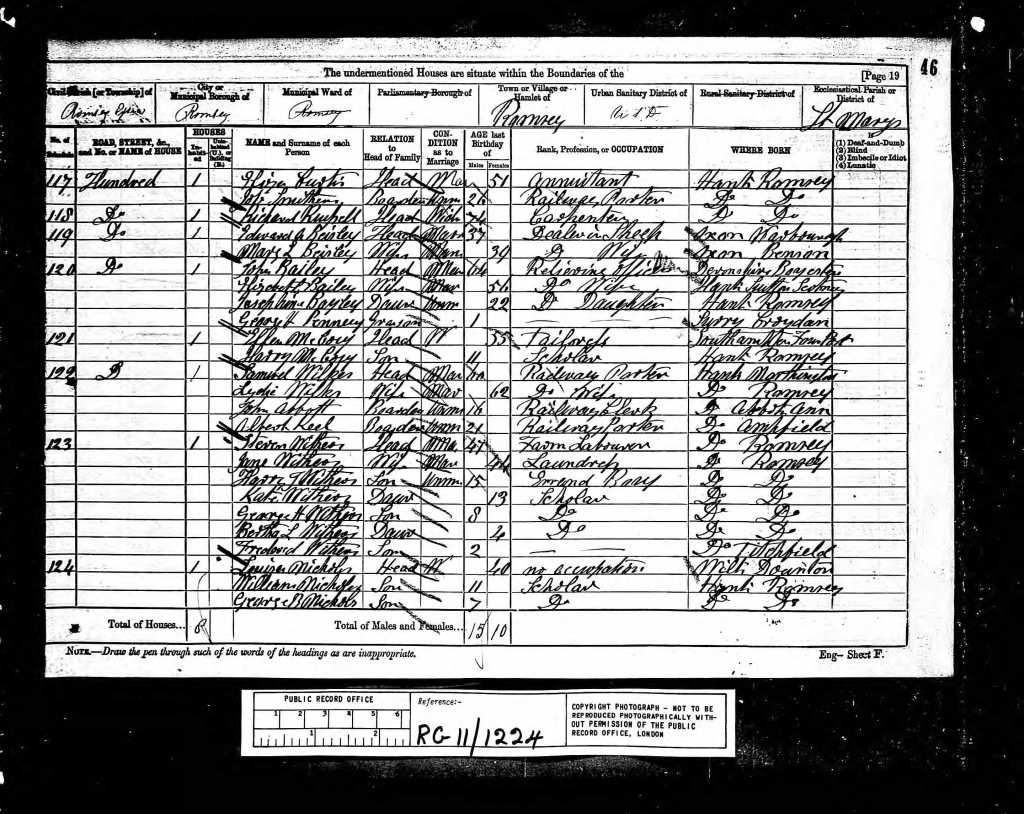 The undermentioned Houses are situate within the Boundaries of the [Page 19 46
Civil Parish [or Township] of
City or Municipal Borough of
Municipal Ward of
Parliamentary Borough of
Town or Village or Hamlet of
Urban Sanitary District of
Rural Sanitary District of
Ecclesiastical Parish or District of
Romsey Romsey Romsey Romsey St Marys
No. of Schedule
ROAD, STREET, &c., and No. or NAME of HOUSE
HOUSES
Inhabited
Uninhabited (U.), or Building (B.)
NAME and Surname of each Person
RELATION to Head of Family
CONDITION as to Marriage
AGE last Birthday of
Males Females
Rank, Profession, or OCCUPATION
WHERE BORN
(1) Deaf-and-Dumb
(2) Blind
(3) Imbecile or Idiot
(4) Lunatic
117 Hundred 1 Curtis Head Mar 51 Annuitant Hants Romsey
Boarder Unm 26 Railway Porter Do Do
118 Do 1 Richard Head 74 Carpenter Do Do
119 Do 1 Edward A Beisley Head Marr 37 Dealer in Sheep Oxon
Mary L Beisley Wife Marr 39 Do Wife Oxon Benson
120 Do 1 John Bailey Head Mar 64 Relieving Officer Devonshire
Elizabeth Bailey Wife Mar 56 Do Wife Hants
Josephine Bayley Daur Unm 22 Do Daughter Hants Romsey
George H Pennery Granson 1 Surry Croydan
121 1 Ellen McCoy Head W 55 Tailoress Southampton
Harry McCoy Son 11 Scholar Hants Romsey
122 Do 1 Samuel Wilkes Head Mar Railway Porter Hants Worthington
Lydie Wilks Wife Mar 62 Do Wife Do Romsey
John Abbott Boarder Unm 16 Railway Clerk Do Abbots Ann
Albert Keel Boarder Unm 21 Railway Porter Do Ampfield
123 1 Steven Withers Head Mar 47 Farm Labourer Do Romsey
Jane Withers Wife Mar 44 Laundress Do Romsey
Harry Withers Son Unm 15 Errand Boy Do Do
Kate Withers Daur 13 Scholar Do Do
George H Withers Son 8 Do Do Do
Bertha L Withers Daur 4 Do Do Do
Frederick Withers Son 2 Do Titchfield
124 1 Louisa Nichols Head W 40 no occupation Wilts Downton
William Nichols Son 11 Scholar Hants Romsey
George B Nichols Son 7 Do Do Do
Total of Houses... 8 Total of Males and Females... 15 10
NOTE.—Draw the pen through such of the words of the headings as are inappropriate. Eng— Sheet F.
PUBLIC RECORD OFFICE
1 2 3 4 5 6
1 2
Reference:-
RG 11/1224
COPYRIGHT PHOTOGRAPH - NOT TO BE
REPRODUCED PHOTOGRAPHICALLY WITH-
OUT PERMISSION OF THE PUBLIC
RECORD OFFICE, LONDON